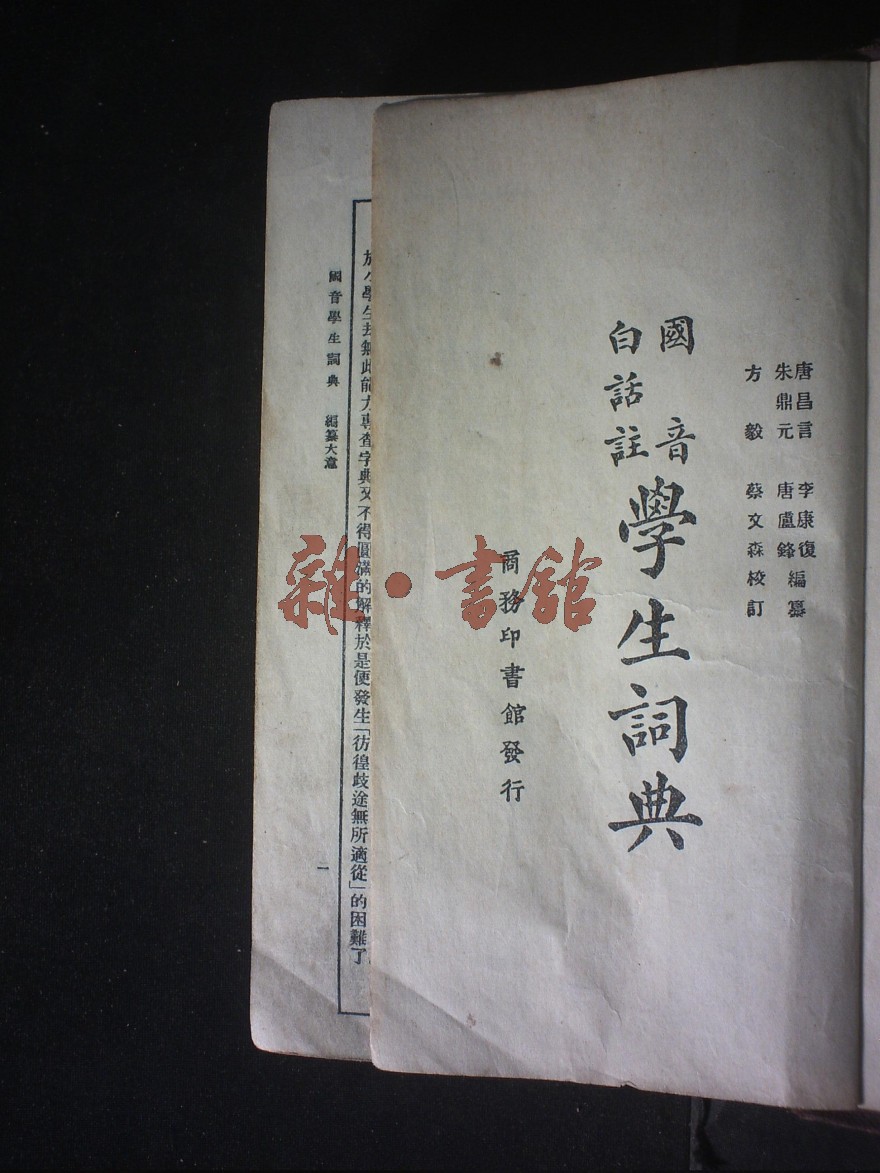 唐昌言 李康復
朱鼎元 唐盧鋒 編纂
方毅 蔡文森 校訂
國音
白話註
學生詞典
商務印書館發行
雜·書館
於小學生却無此能力專查字典又不得圓滿的解釋於是便發生「彷徨歧途無所適從」的困難了
國音學生詞典 編纂大意 一